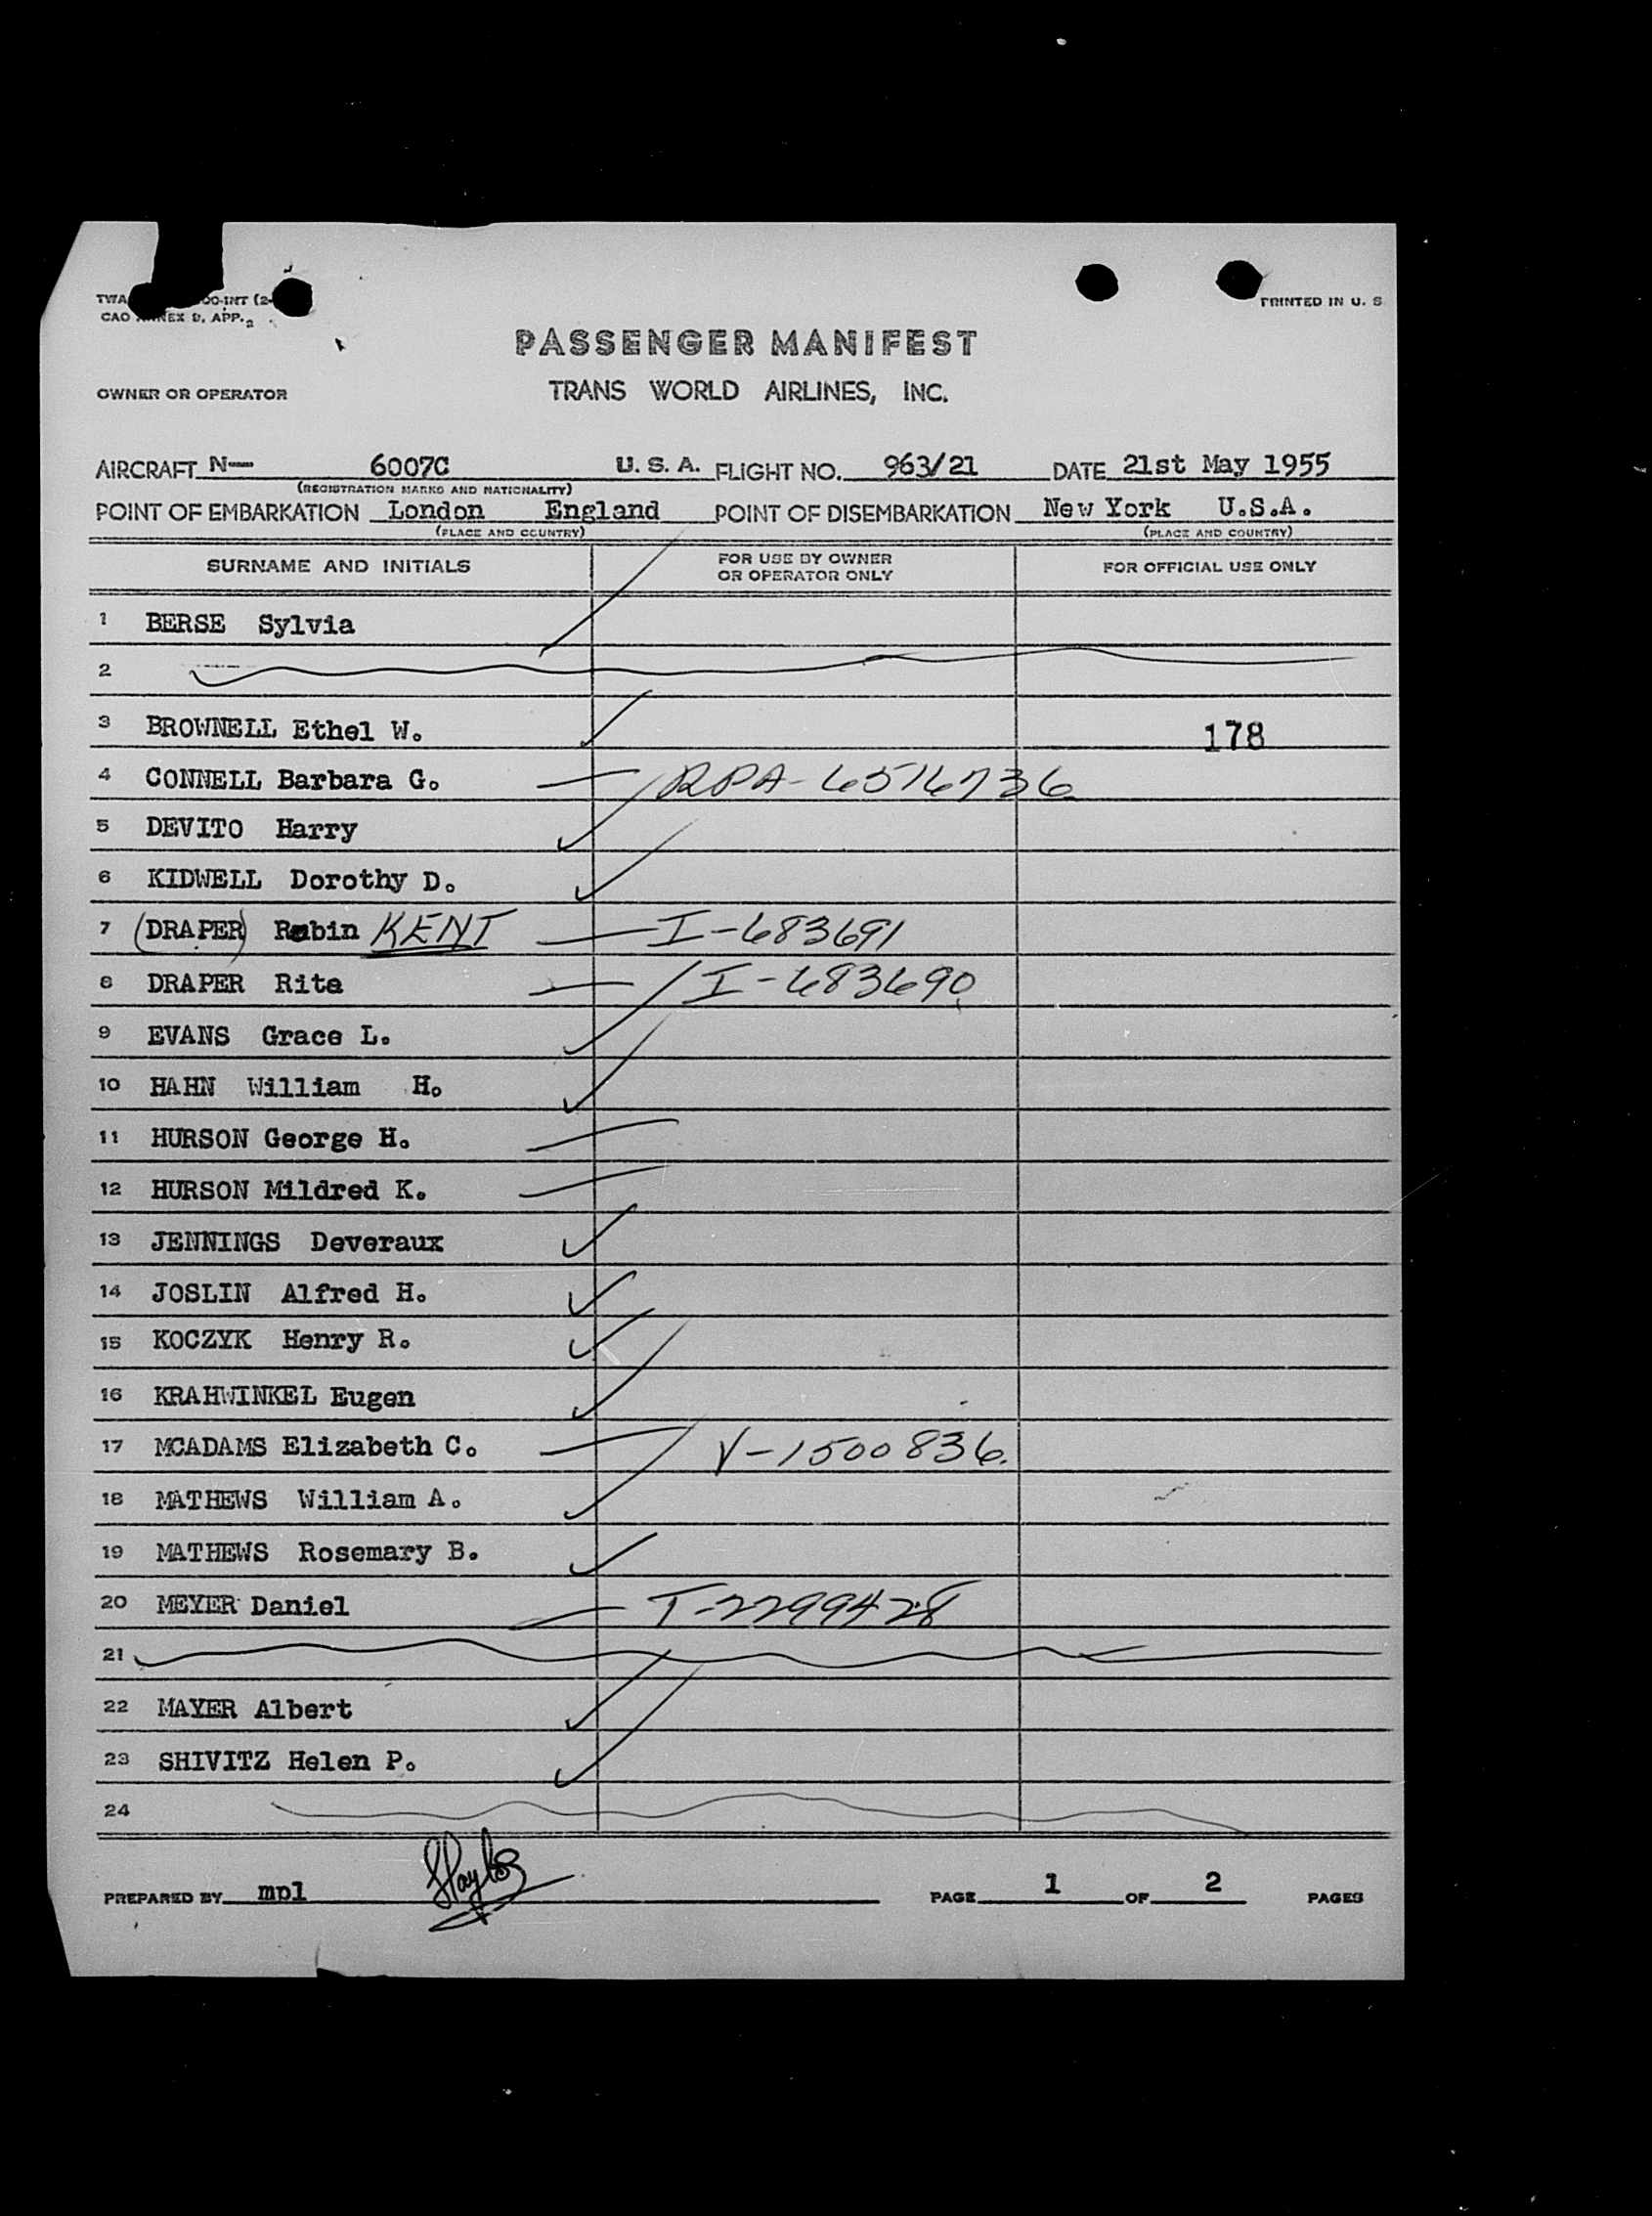 TWA 00-INT (2-
CAO ANNEX 9, APP. 2
PRINTED IN U. S
PASSENGER MANIFEST
OWNER OR OPERATOR TRANS WORLD AIRLINES, INC.
AIRCRAFT N— 6007C U. S. A. FLIGHT NO. 963/21 DATE 21st May 1955
(REGISTRATION MARKS AND NATIONALITY)
POINT OF EMBARKATION London England POINT OF DISEMBARKATION New York U.S.A.
(PLACE AND COUNTRY) (PLACE AND COUNTRY)
SURNAME AND INITIALS FOR USE BY OWNER OR OPERATOR ONLY FOR OFFICIAL USE ONLY
1 BERSE Sylvia
2
3 BROWNELL Ethel W. 178
4 CONNELL Barbara G. RPA-6516736
5 DEVITO Harry
6 KIDWELL Dorothy D.
7 (DRAPER) Robin KENT I-683691
8 DRAPER Rita I-683690
9 EVANS Grace L.
10 HAHN William H.
11 HURSON George H.
12 HURSON Mildred K.
13 JENNINGS Deveraux
14 JOSLIN Alfred H.
15 KOCZYK Henry R.
16 KRAHWINKEL Eugen
17 MCADAMS Elizabeth C. V-1500836.
18 MATHEWS William A.
19 MATHEWS Rosemary B.
20 MEYER Daniel I-2299428
21
22 MAYER Albert
23 SHIVITZ Helen P.
24
PREPARED BY mpl PAGE 1 OF 2 PAGES